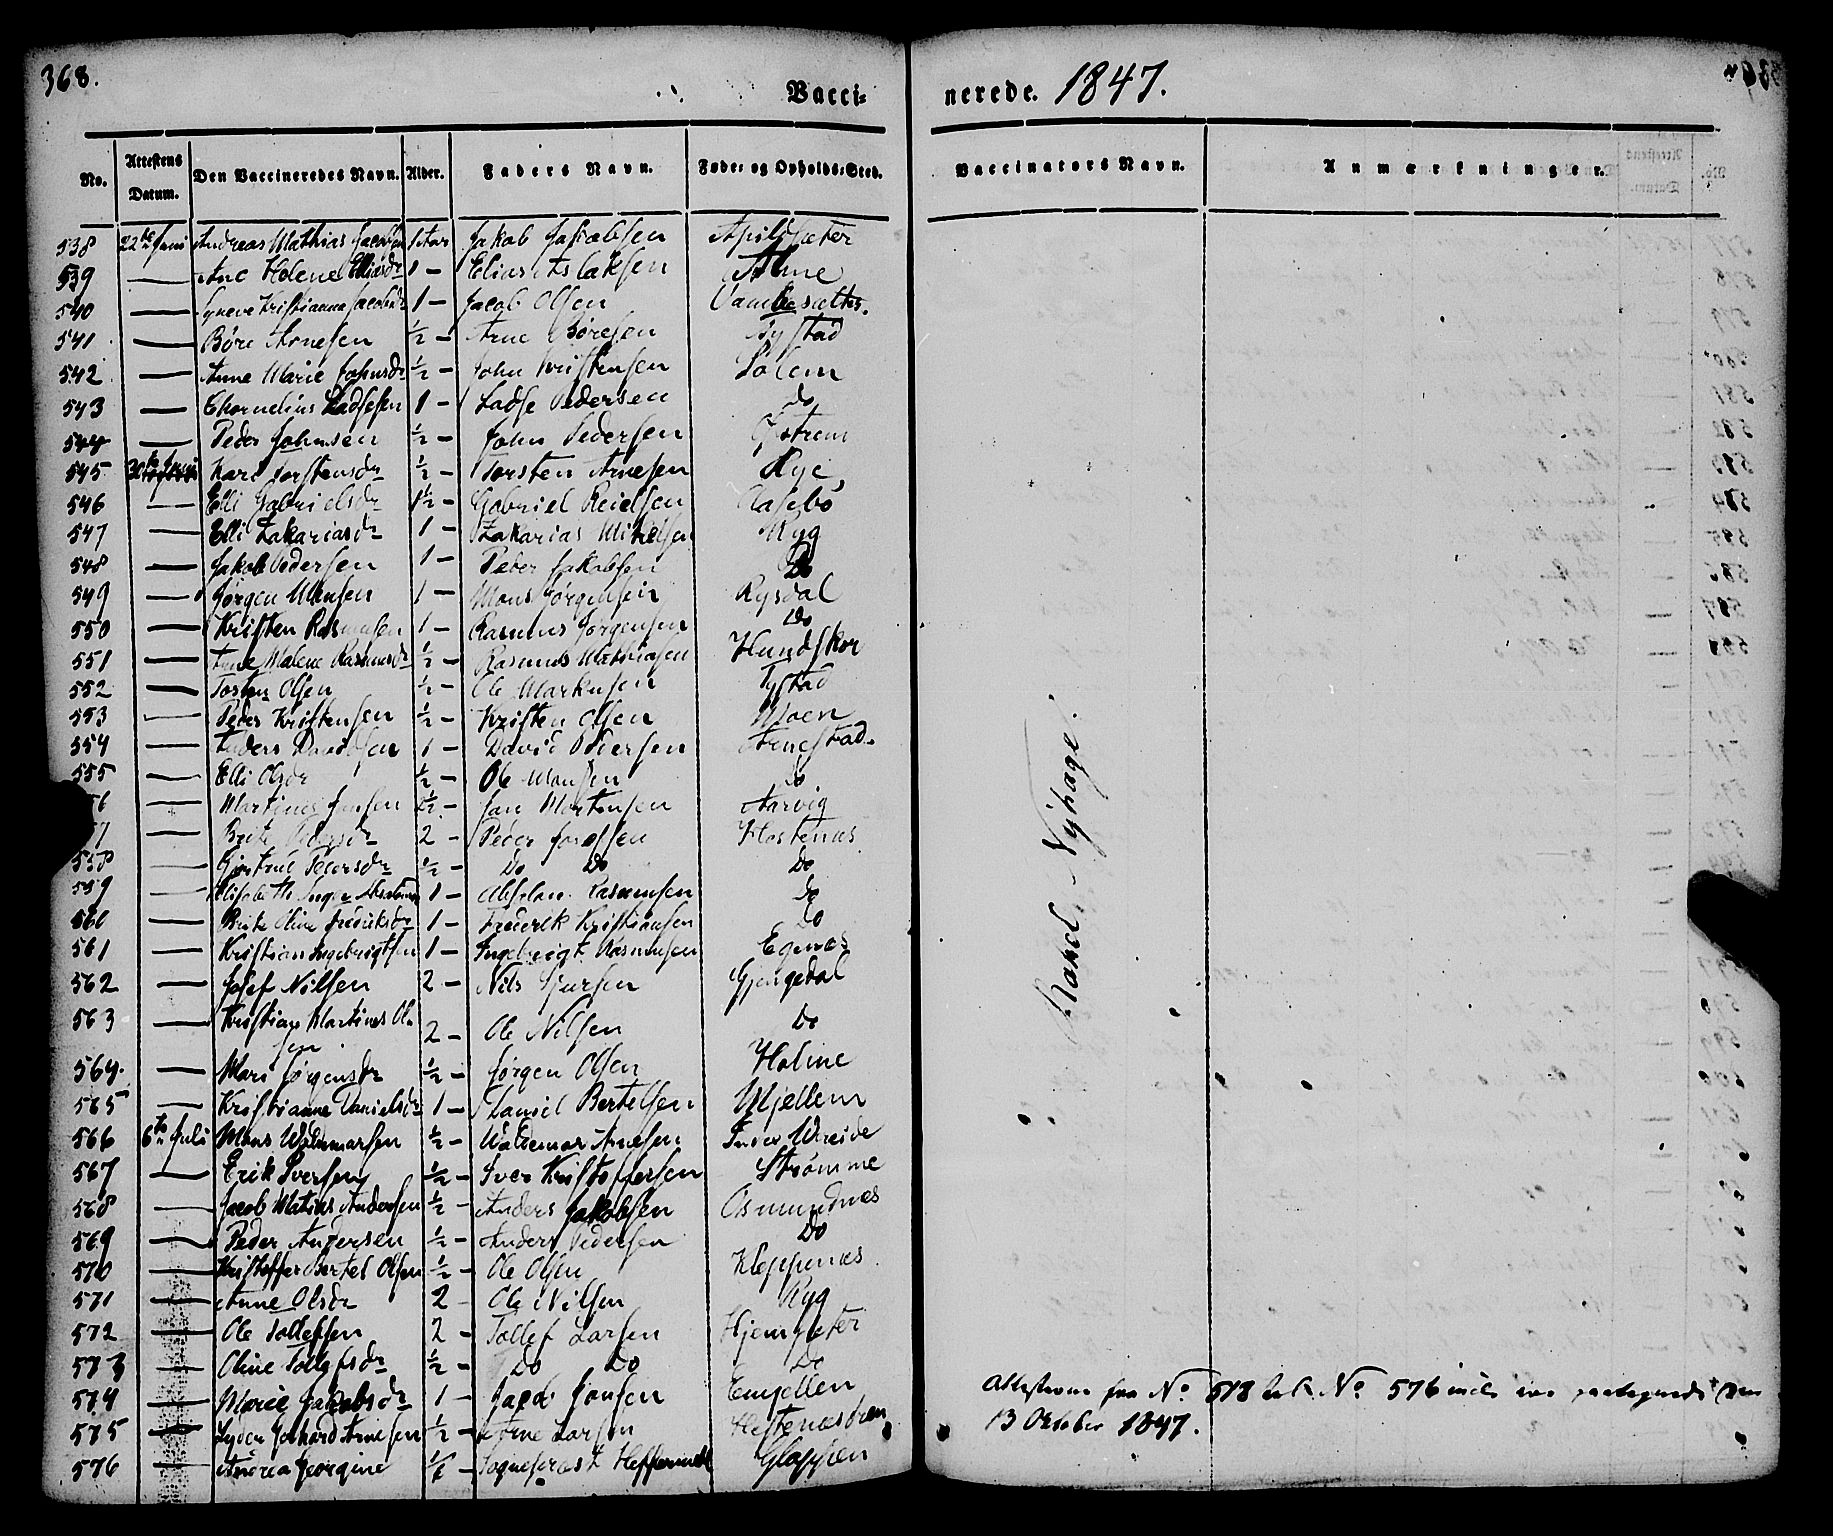 368.
Vacci= nerede. 1847.
No. Attestens Datum. Den Vaccineredes Navn. Alder. Faders Navn. Føde= og Opholds=Sted. Vaccinators Navn. Anmærkninger.
538 22de Juni Andreas Mathias Jacobsen 1 Aar Jakob Jakobsen Apildsæter
539 — Ane Helene Eliasdr 1 — Elias Aslaksen Alme
540 — Synneve Kristianna Jacobsdr 1 — Jacob Olsen
541 — Børe Arnesen ½ — Arne Børesen Tystad
542 — Anne Marie Johnsdr ½ — John Kristensen Solem
543 — Chornelius Ladsesen 1 — Ladse Pedersen do
544 — Peder Johnsen ½ — John Pedersen
545 Kari Torstensdr ½ — Torsten Arnesen Rye
546 — Elli Gabrielsdr 1½ — Gabriel Reielsen Aasebø
547 — Elli Zakariasdr 1 — Zakarias Mikelsen Ryg
548 — Jakob Pedersen 1 — Peder Jakobsen Do
549 — Jørgen Monsen 1 — Mons Jørgensen Rygdal
550 — Kristen Rasmusen 1 — Rasmus Jørgensen Do
551 — Ane Malene Rasmusdr ½ — Rasmus Mathiasen Hundskor
552 — Tosten Olsen ½ — Ole Markusen Tystad
553 — Peder Kristensen ½ — Kristen Olsen Moen
554 — Anders Davidsen 1 — David Pedersen Arnestad.
555 — Elli Olsdr ½ — Ole Monsen do
— Martinus Jansen — Jan Mortensen Aarvig
— Brite 2 — Peder Hestenæs
558 — Gjertrud Pedersdr ½ — Do Do Do
559 — Elisabeth Inger 1 — Absalon Rasmusen Do
560 — Brite Oline Frederiksdr 1 — Frederik Kristiansen Do
561 — Kristian Ingebrigtsen 1 — Ingebrigt Rasmusen Egenæs
562 — Josef Nilsen 2 — Nils Sjursen Gjengedal
563 — Kristian Martines Ol-
sen 2 — Ole Nilsen Do
564. — Mari Jørgensdr ½ — Jørgen Olsen Holme
565 — Kristianne Danielsdr 1 — Daniel Bertelsen Mjellem
566 6te Juli Mons Waldemarsen ½ — Waldemar Arnesen Indre Wereide
567 — Erik Iversen ½ — Iver Kristoffersen Strømme
568 — Jacob Matias Andersen ½ — Anders Jakobsen Osmundnes
569 — Peder Andersen ½ — Anders Pedersen Do
570 — Kristoffer Bertel Olsen ½ — Ole Olsen Kleppenæs
571 — Anne Olsdr 2 — Ole Nilsen Ryg
572 — Ole Tollefsen 2 — Tollef Larsen Hjemsæter
573 — Oline Tollefsdr ½ — Do Do Do
574 — Marie Jakobsdr 1 — Jacob Jonsen Emjellen
575 — Lyder Gerhard Arnesen ½ — Arne Larsen
576 — Andrea Georgine Sogneprest Gloppen
Rakel Nyhage.
Attesterne fra No 513 til No 576 incl.
13 Oktober 1847.